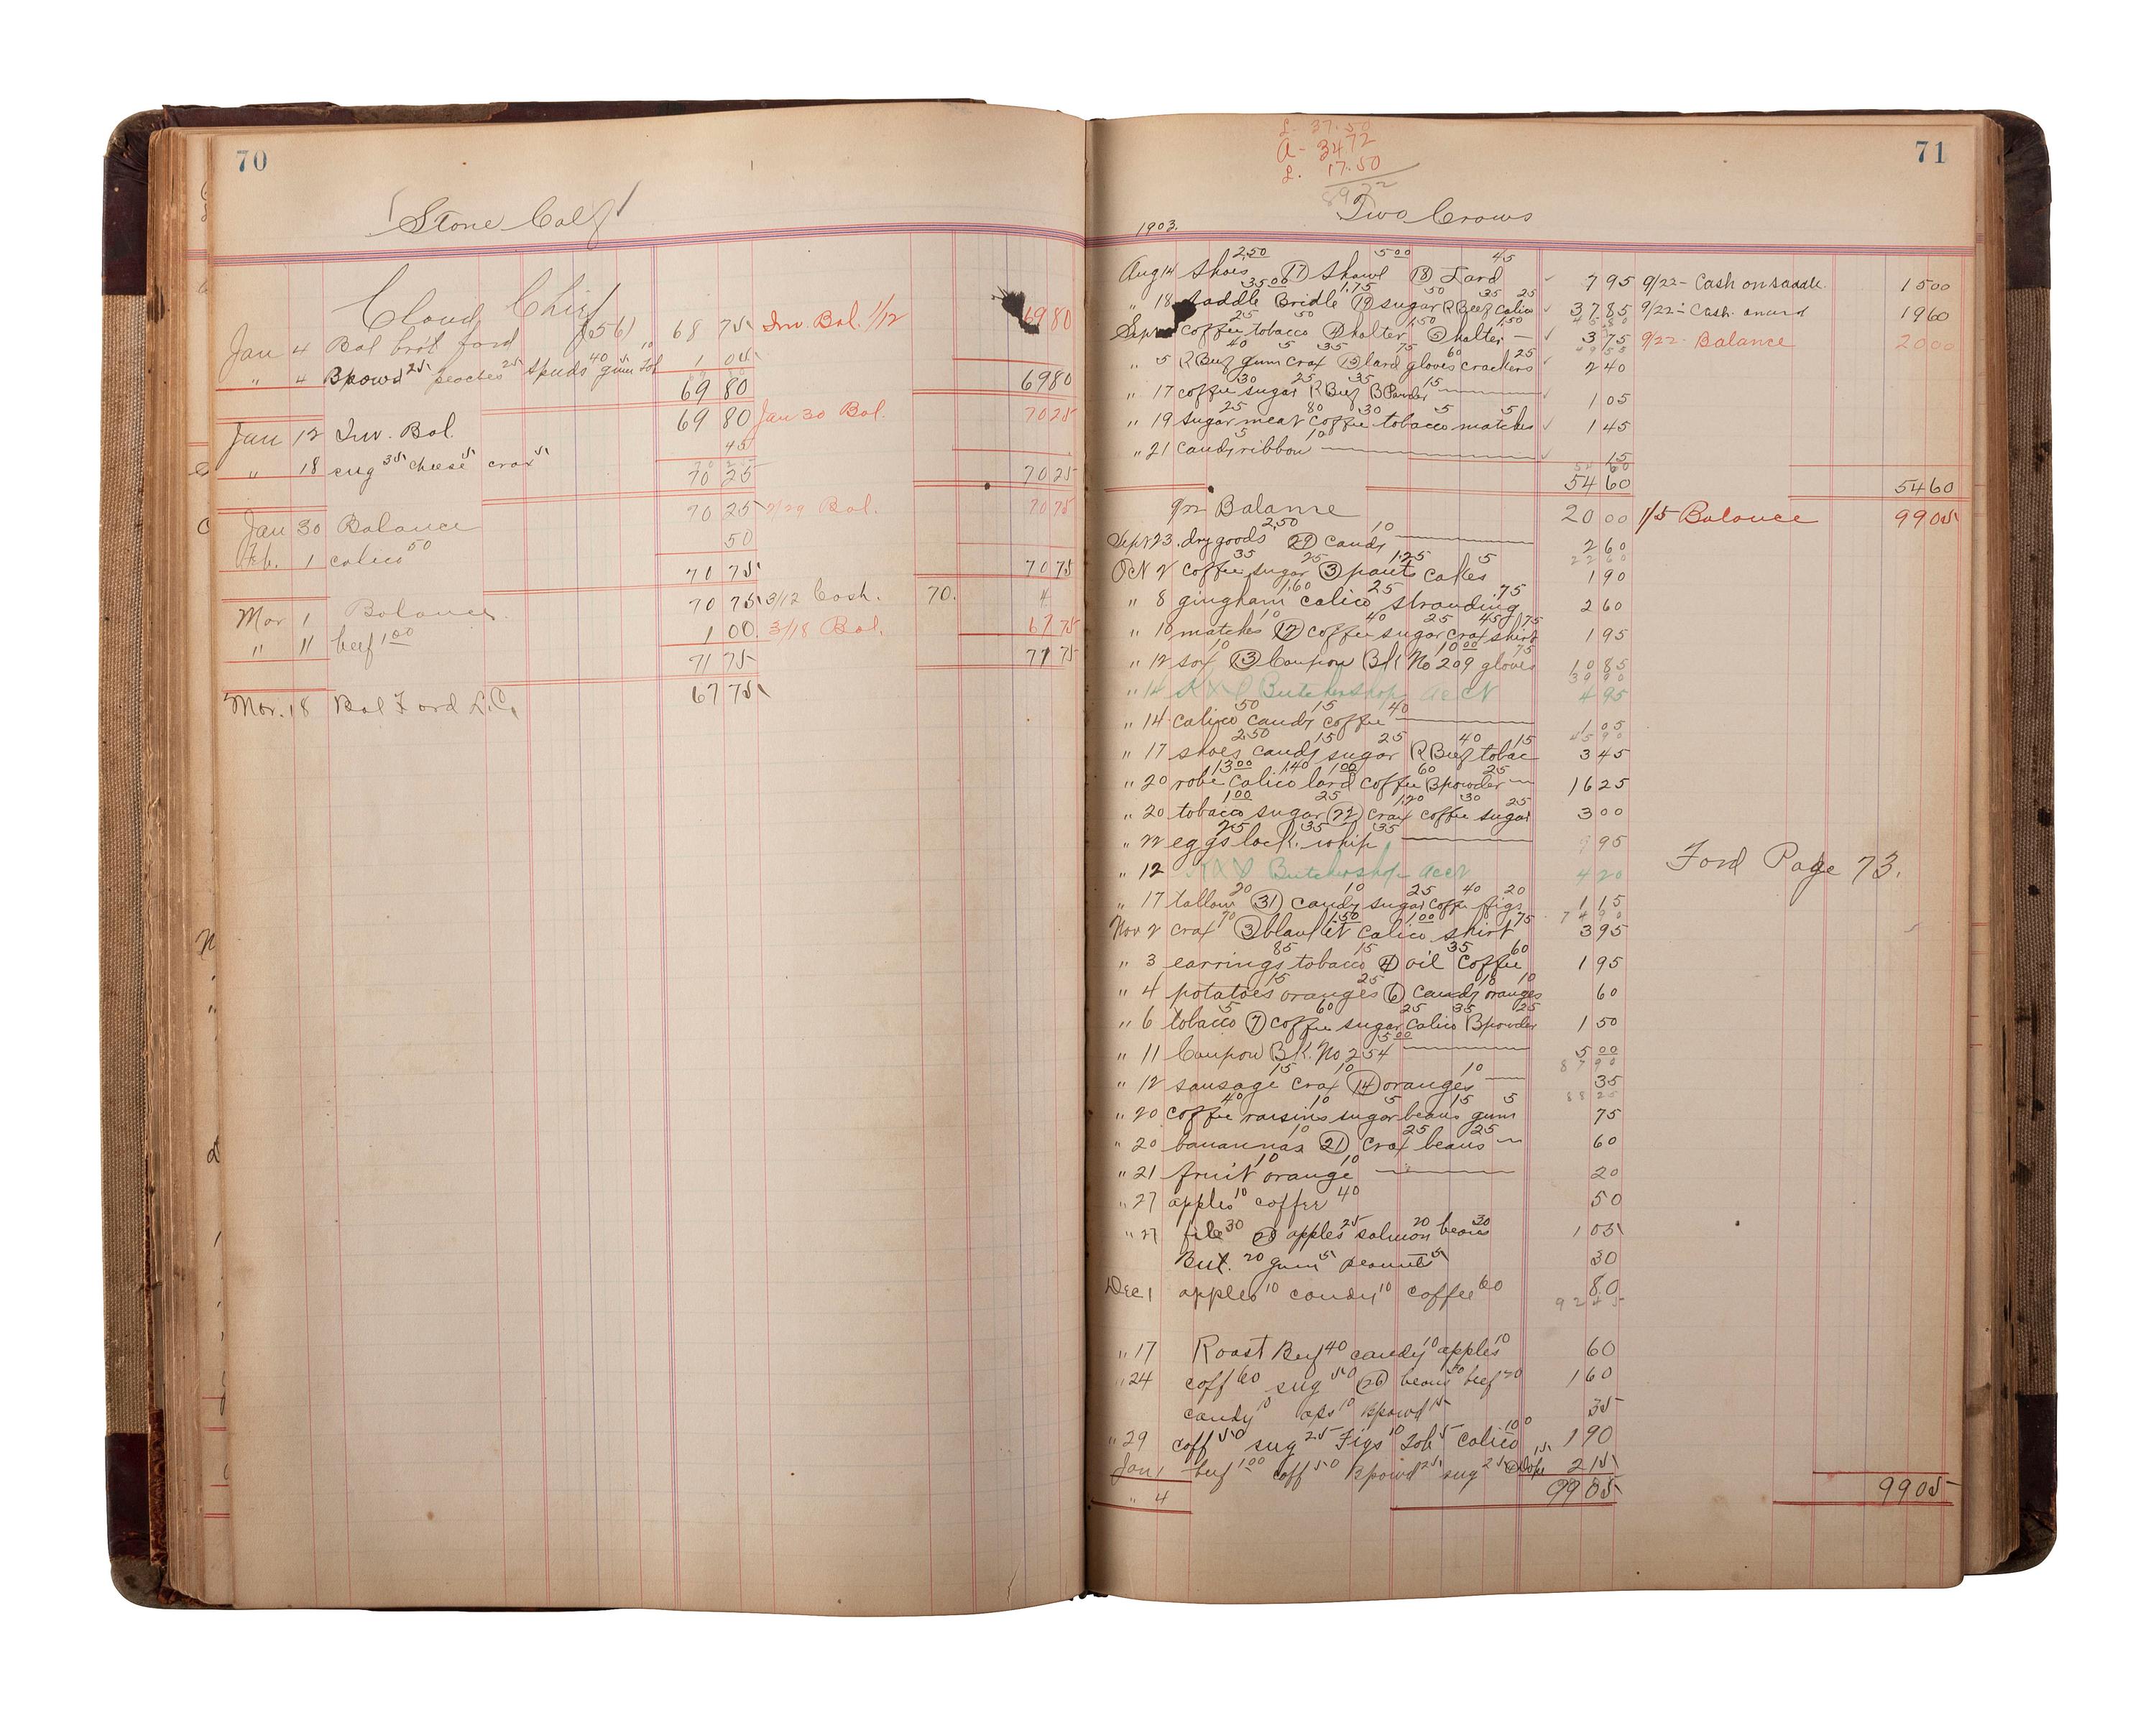 70
Stone Calf
Cloud Chief
Jan 4 Bal brot ford (656) 68 75 Inv. Bal. 1/12 69 80
" 4 Bpowd 25 peaches 25 spuds 40 gum 5 Tob 10 1 05
69 80 69 80
Jan 12 Inv. Bal. 69 80 Jan 30 Bal. 70 25
" 18 sug 35 cheese 5 crax 5 45
70 25 70 25
Jan 30 Balance 70 25 Bal. 70 75
Feb. 1 calico 50 50
70 75 70 75
Mar 1 Balance 70 75 3/12 Cash. 70. 4
" 11 beef 1 00 1 00 3/18 Bal. 67 75
71 75 71 75
Mar. 18 Bal Ford L.C. 67 75
71
L- 37.50
A- 34 72
L. 17.50
89 72
1903. Two Crows
Aug 14 Shoes 2.50 (17) Shawl 5 00 (18) Lard 45 7 95 9/22- Cash on saddle. 15 00
" 18 Saddle 35 00 Bridle 1.75 (19) sugar 50 R Beef 35 calico 25 37 85 9/22- Cash on acct 19 60
Sep coffee 25 tobacco 50 halter 1.50 halter 1.50 3 75 9/22- Balance 20 00
" 5 R Beef 40 gum 5 crax 35 (15) lard 75 gloves 60 crackers 25 2 40
" 17 coffee 30 sugar 25 R Beef 35 B Powder 15 1 05
" 19 sugar 25 meat 80 coffee 30 tobacco 5 matches 5 1 45
" 21 candy 5 ribbon 10 15
54 60
54 60 54 60
9/22 Balance 20 00 1/5 Balance 99 05
Sept 23. dry goods 2.50 (29) candy 10 2 60
22 60
Oct 2 coffee 35 sugar 25 (3) pants 1.25 cakes 5 1 90
" 8 gingham 1.60 calico 25 strouding .75 2 60
" 10 matches 10 (12) coffee 40 sugar 25 crax 45 shirt 75 1 95
" 12 sox 10 (13) Coupon Bk No 209 10 00 gloves 75 10 85
39 90
" 14 Butchershop acct 4 95
" 14 calico 50 candy 15 coffee 40 1 05
45 90
" 17 shoes 2.50 candy 15 sugar 25 R Beef 40 tobac 15 3 45
" 20 robe 13 00 calico 1.40 lard 1 00 coffee 60 Bpowder 25 16 25
" 20 tobacco 1 00 sugar 25 (22) crax 1.20 coffee 30 sugar 25 3 00
" 22 eggs 25 lock. 35 whip 35 95
" 12 Butchershop acct 4 20
Ford Page 73.
" 17 tallow 20 (31) candy 10 sugar 25 coffee 40 figs 20 1 15
74 90
Nov 2 crax 70 (3) blanket 1.50 calico 1 00 shirt 75 3 95
" 3 earrings 85 tobacco 15 (4) oil 35 coffee 60 1 95
" 4 potatoes 15 oranges 25 (6) candy 10 oranges 10 60
" 6 tobacco 5 (7) coffee 60 sugar 25 calico 35 Bpowder 25 1 50
" 11 Coupon Bk. No 254 5 00 5 00
87 90
" 12 sausage 15 crax 10 (14) oranges 10 35
88 25
" 20 coffee 40 raisins 10 sugar 5 beans 15 gum 5 75
" 20 banannas 10 (21) crax 25 beans 25 60
" 21 fruit 10 orange 10 20
" 27 apples 10 coffee 40 50
" 27 file 30 (28) apples 25 salmon 20 beans 30 1 05
But. 20 gum 5 peanuts 5 30
Dec 1 apples 10 candy 10 coffee 60 80
92 45
" 17 Roast Beef 40 candy 10 apples 10 60
" 24 coff 60 sug 50 (26) beans 30 beef 20 1 60
candy 10 aps 10 Bpowd 15 35
" 29 coff 50 sug 25 Figs 10 Tob 5 Calico 1 00 1 90
Jan 1 beef 1 00 coff 50 Bpowd 25 sug 25 15 2 15
" 4 99 05 99 05